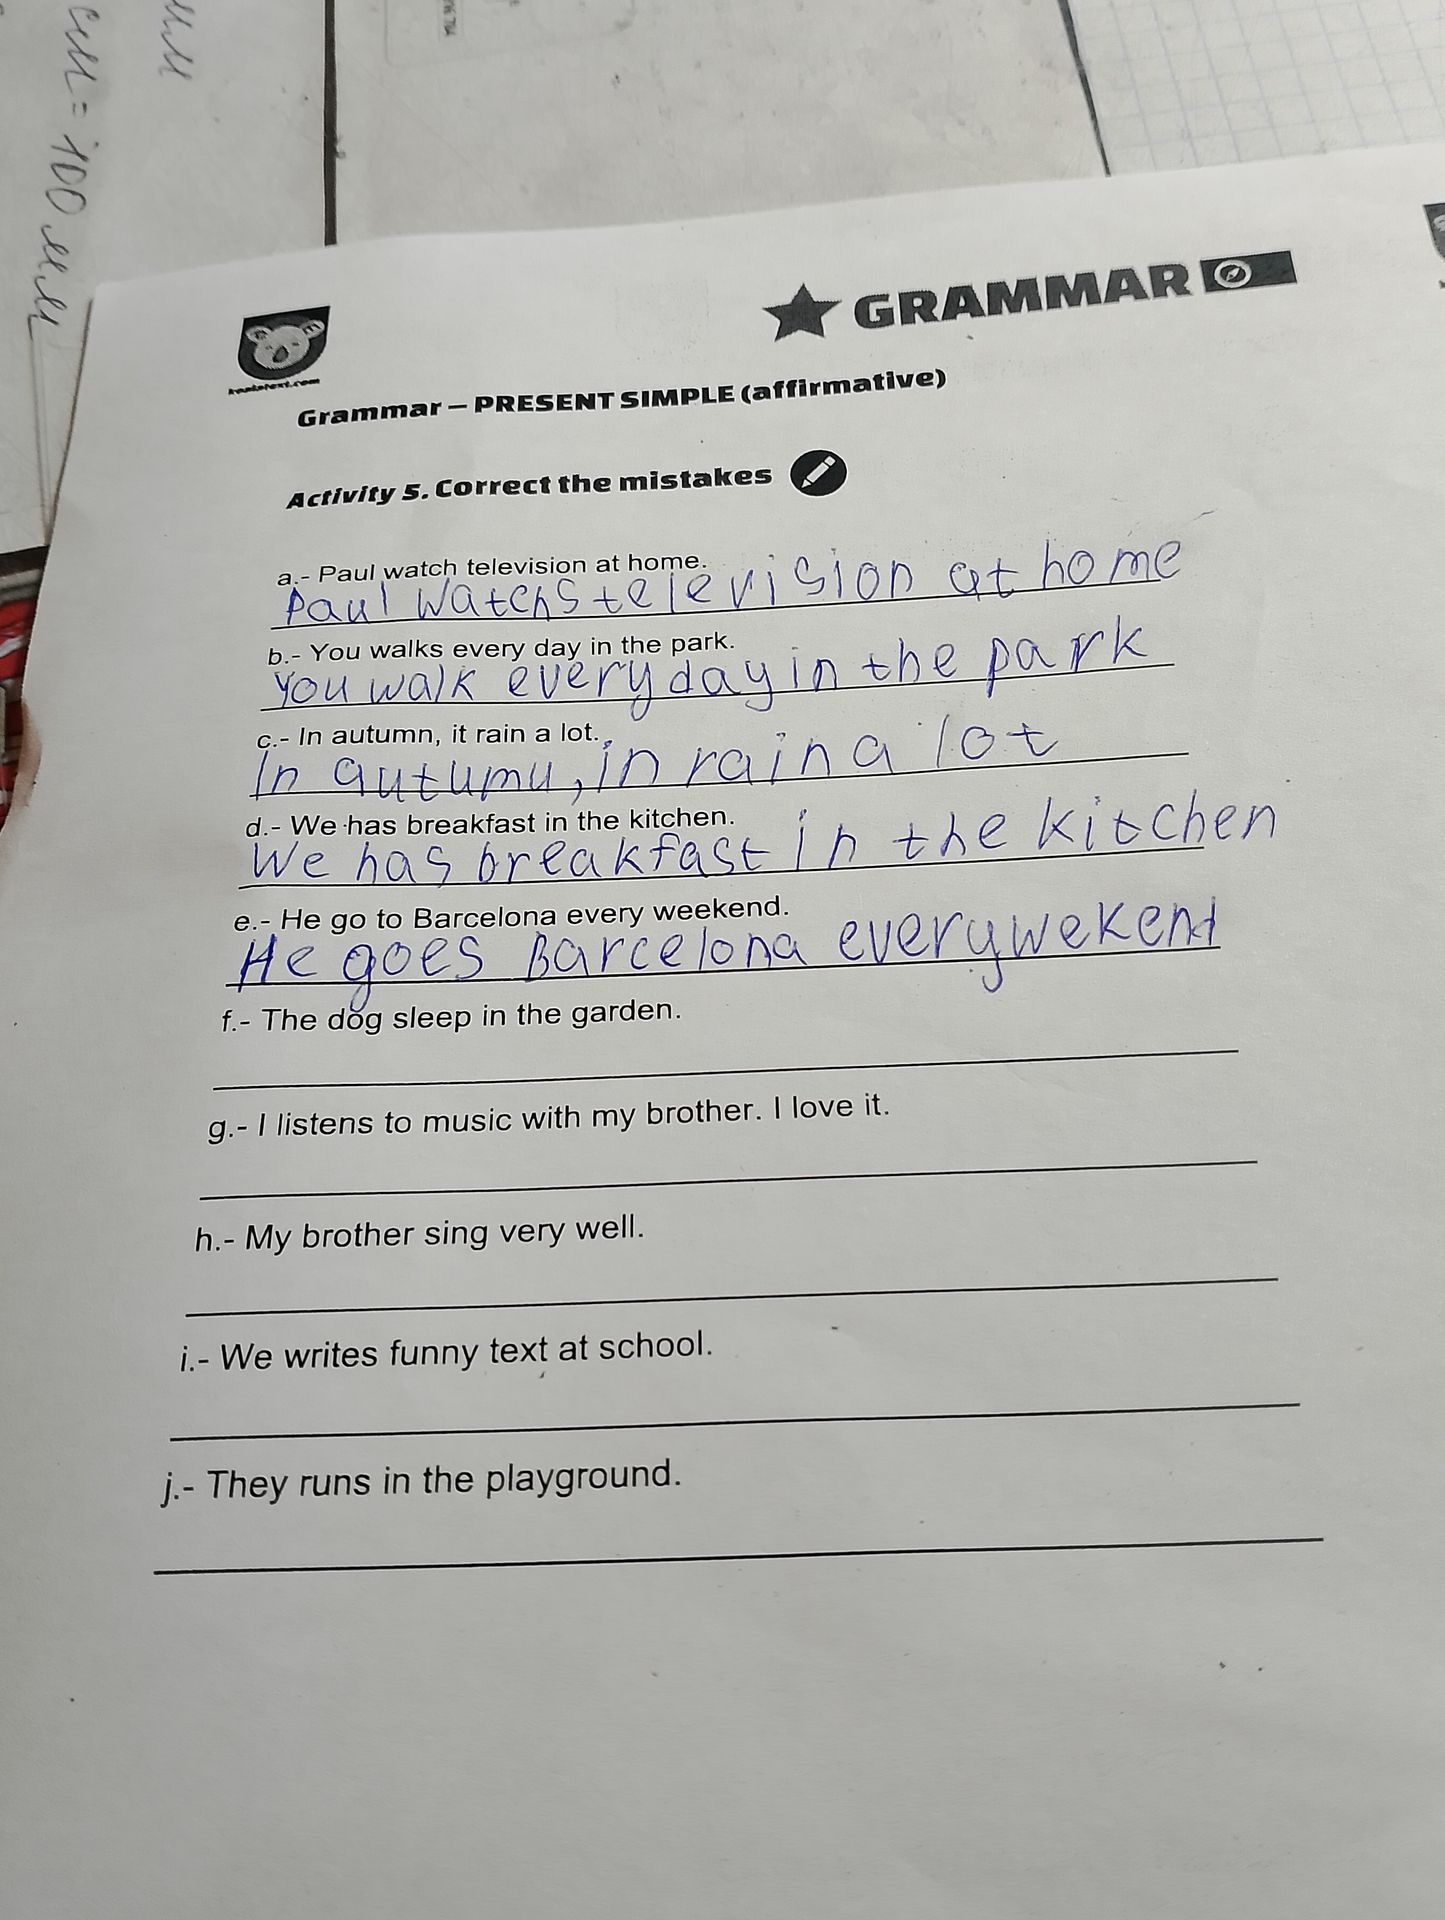 см = 100 мм
GRAMMAR
Grammar – PRESENT SIMPLE (affirmative)
Activity 5. Correct the mistakes
a.- Paul watch television at home.
Paul watchs television at home
b.- You walks every day in the park.
You walk every day in the park
c.- In autumn, it rain a lot.
In autumu, in rain a lot
d.- We has breakfast in the kitchen.
We has breakfast in the kitchen
e.- He go to Barcelona every weekend.
He goes Barcelona every wekend
f.- The dog sleep in the garden.
g.- I listens to music with my brother. I love it.
h.- My brother sing very well.
i.- We writes funny text at school.
j.- They runs in the playground.